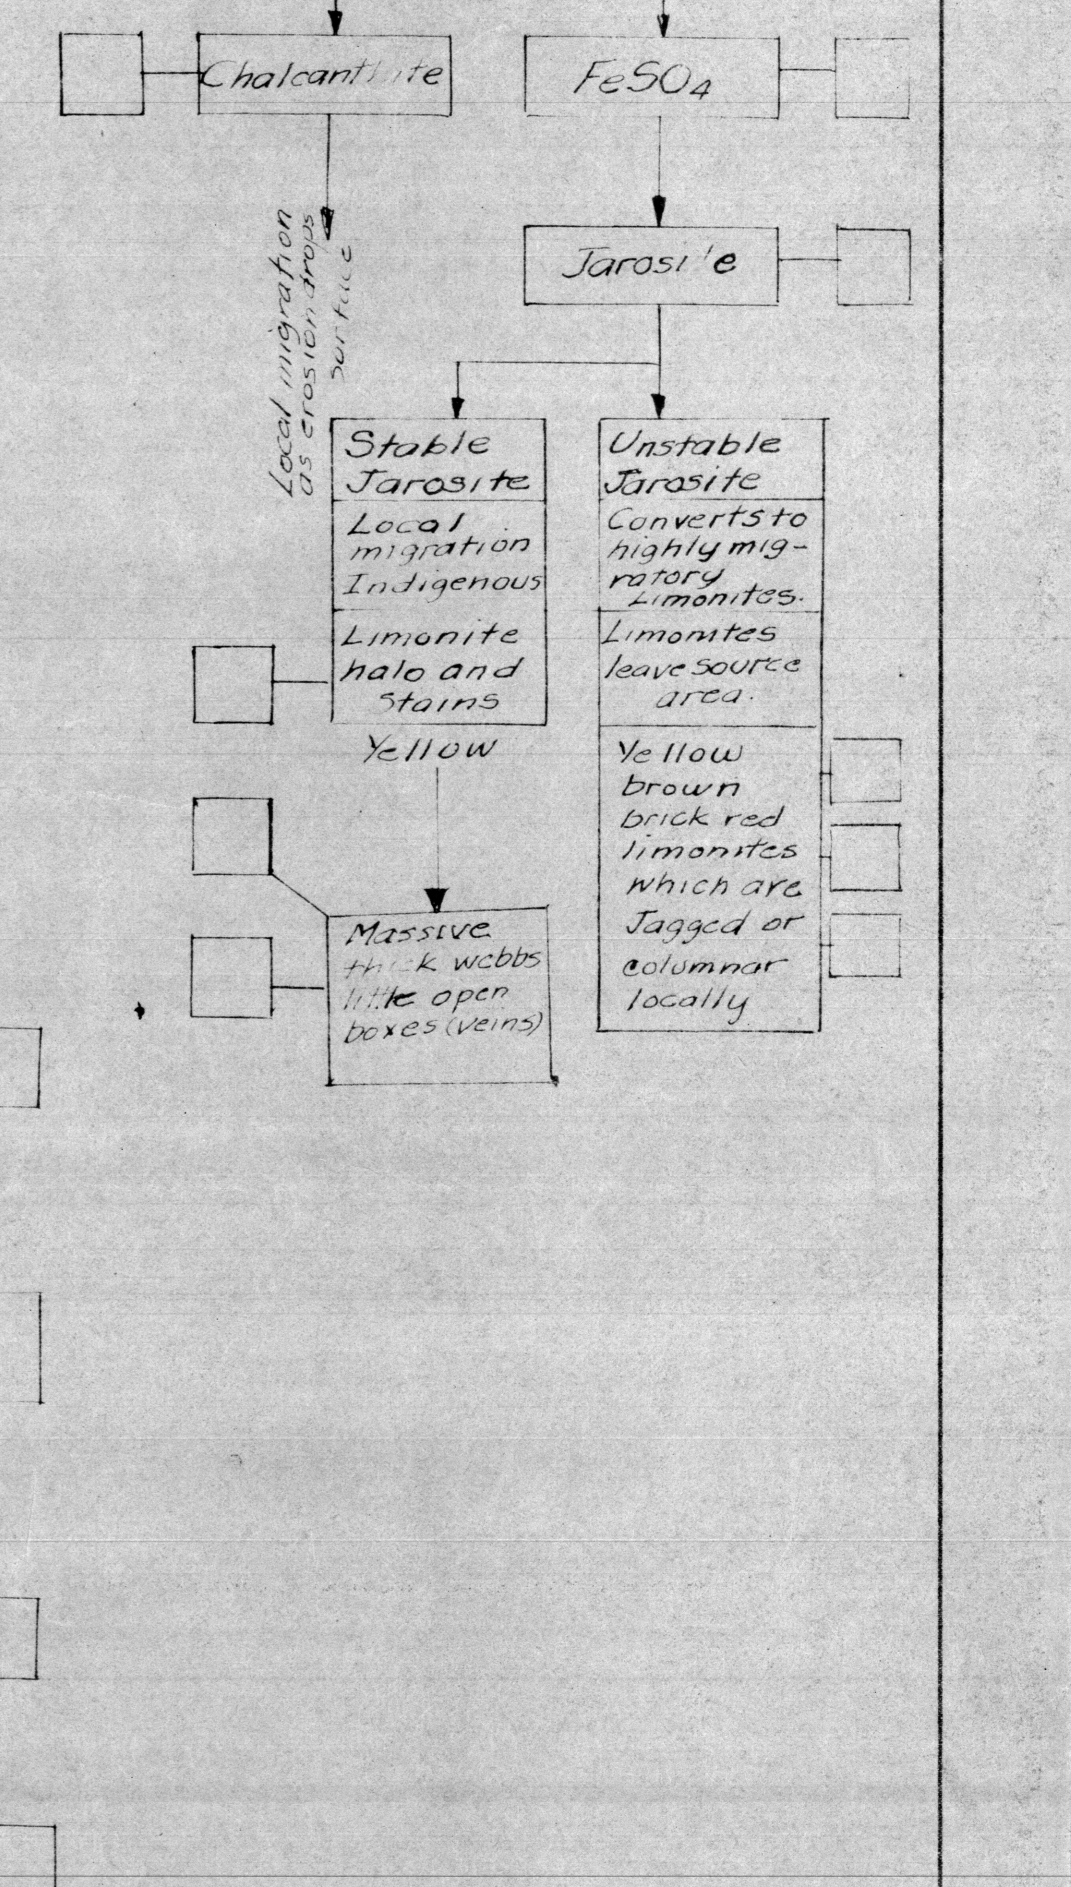 Chalcanthite
FeSO4
Local migration
as erosion drops
surface
Jarosite
Stable
Jarosite
Local
migration
Indigenous
Limonite
halo and
stains
Yellow
Massive
thick webbs
little open
boxes (veins)
Unstable
Jarosite
Converts to
highly mig-
ratory
Limonites.
Limonites
leave source
area.
Yellow
brown
brick red
limonites
which are
Jagged or
columnar
locally